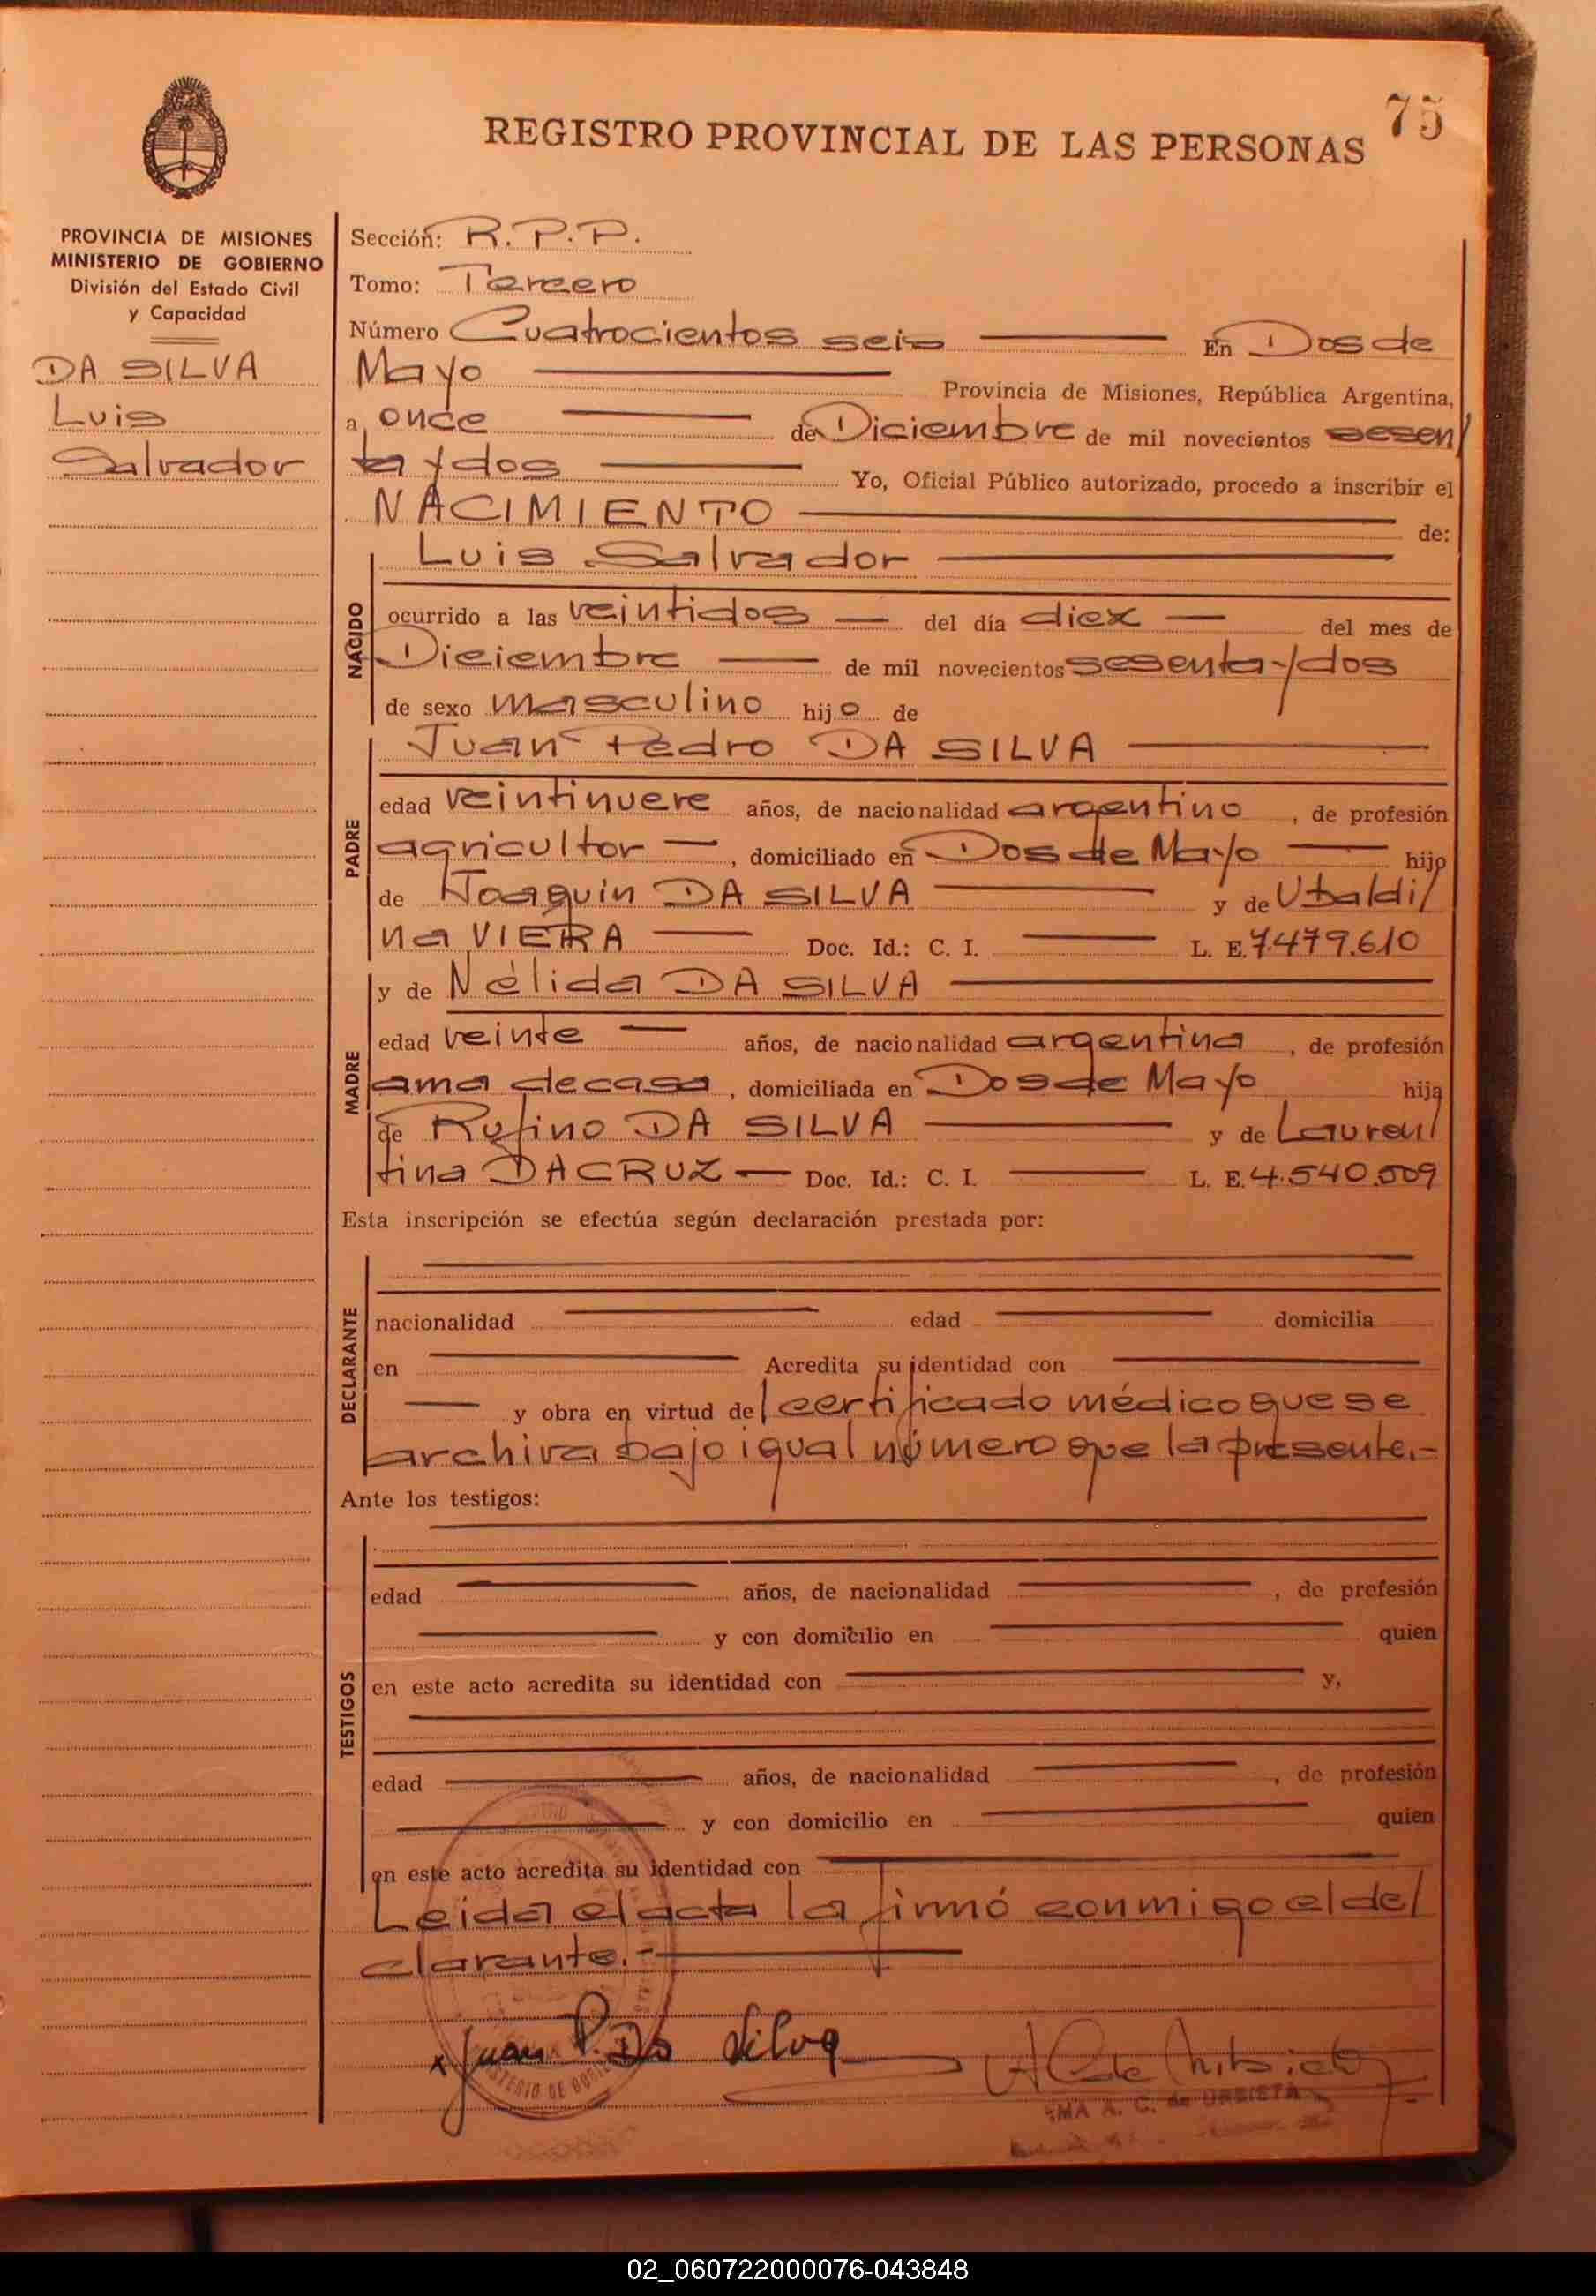 75
REGISTRO PROVINCIAL DE LAS PERSONAS
PROVINCIA DE MISIONES
MINISTERIO DE GOBIERNO
División del Estado Civil
y Capacidad
DA SILVA
Luis
Salvador
Sección: R.P.P.
Tomo: Tercero
Número Cuatrocientos seis En Dos de
Mayo Provincia de Misiones, República Argentina,
a once de Diciembre de mil novecientos sesen/
ta y dos Yo, Oficial Público autorizado, procedo a inscribir el
NACIMIENTO de:
Luis Salvador
NACIDO
ocurrido a las veintidos del día diez del mes de
Diciembre de mil novecientos sesenta y dos
de sexo masculino hijo de
Juan Pedro DA SILVA
PADRE
edad veintinueve años, de nacionalidad argentino, de profesión
agricultor, domiciliado en Dos de Mayo hijo
de Joaquin DA SILVA y de Ubaldi/
na VIERA Doc. Id.: C. I. L. E. 7.479.610
y de Nélida DA SILVA
MADRE
edad veinte años, de nacionalidad argentina, de profesión
ama de casa, domiciliada en Dos de Mayo hija
de Rufino DA SILVA y de Lauren/
tina DACRUZ Doc. Id.: C. I. L. E. 4.540.509
Esta inscripción se efectúa según declaración prestada por:
DECLARANTE
nacionalidad edad domicilia
en Acredita su identidad con
y obra en virtud del certificado médico que se
archiva bajo igual número que la presente.-
Ante los testigos:
TESTIGOS
edad años, de nacionalidad , de profesión
y con domicilio en quien
en este acto acredita su identidad con y,
edad años, de nacionalidad , de profesión
y con domicilio en quien
en este acto acredita su identidad con
Leida el acta la firmó conmigo el de/
clarante.-
x Juan P. Da Silva
A. C. de URBIETA
02_060722000076-043848